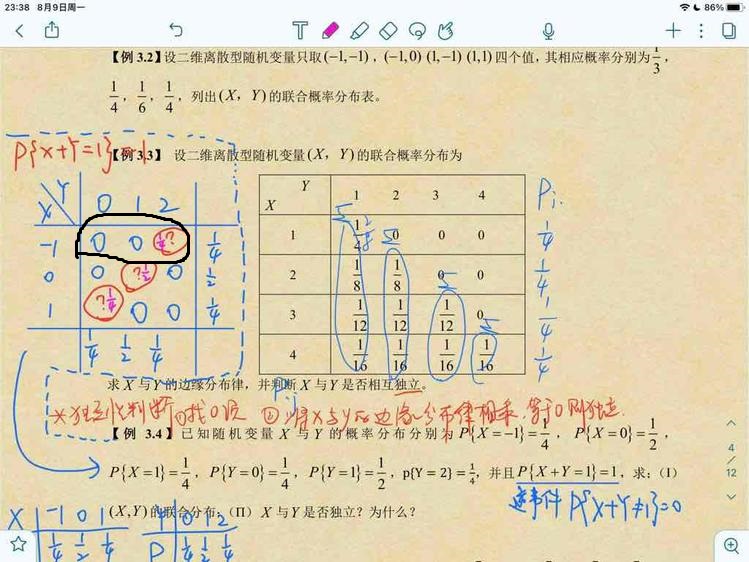 23:38 8月9日周一
86%
【例 3.2】设二维离散型随机变量只取(−1,−1)，(−1,0) (1,−1) (1,1)四个值，其相应概率分别为1/3，
1/4，1/6，1/4，列出(X，Y)的联合概率分布表。
P{X+Y=1}=1
【例 3.3】 设二维离散型随机变量(X，Y)的联合概率分布为
Y
X
0 1 2
-1 0 0 ?1/4 1/4
0 0 ?1/2 0 1/2
1 ?1/4 0 0 1/4
1/4 1/2 1/4
Y
X
1 2 3 4
Pi.
1 1/4 0 0 0 1/4
2 1/8 1/8 0 0 1/4
3 1/12 1/12 1/12 0 1/4
4 1/16 1/16 1/16 1/16 1/4
求 X 与 Y 的边缘分布律，并判断 X 与 Y 是否相互独立。
P.j
*独立性判断 ①找0项 ②将X与Y的边缘分布律相乘，等于0则独立.
【例 3.4】已知随机变量 X 与 Y 的概率分布分别为 P{X=−1}=1/4，P{X=0}=1/2，
P{X=1}=1/4，P{Y=0}=1/4，P{Y=1}=1/2，p{Y=2}=1/4，并且P{X+Y=1}=1，求：(I)
(X,Y)的联合分布；(II) X 与 Y 是否独立？为什么？
逆事件 P{X+Y≠1}=0
X -1 0 1
1/4 1/2 1/4
Y 0 1 2
P 1/4 1/2 1/4
4
12